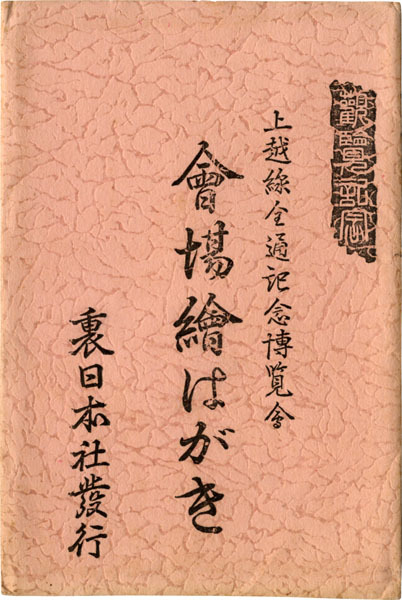 觀覽記念
上越線全通記念博覧会
會場繪はがき
裏日本社發行